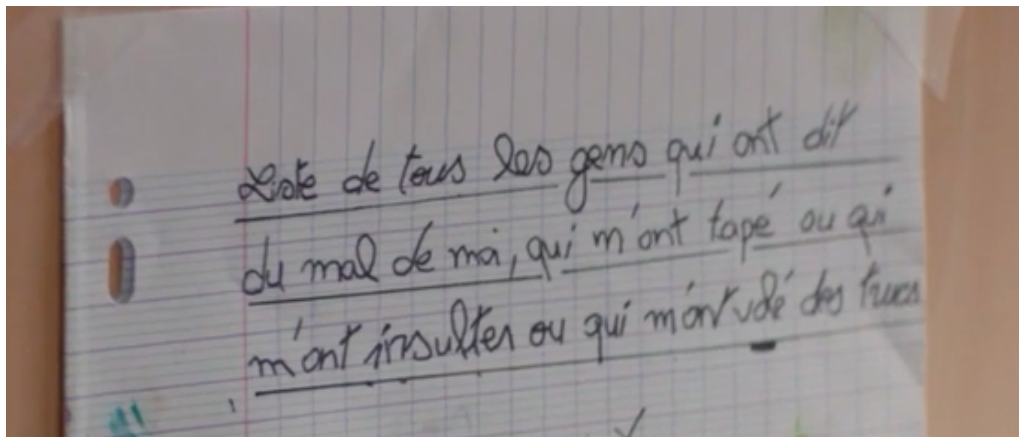 Liste de tous les gens qui ont dit
du mal de moi, qui m'ont tapé ou qui
m'ont insulter ou qui m'ont volé des trucs